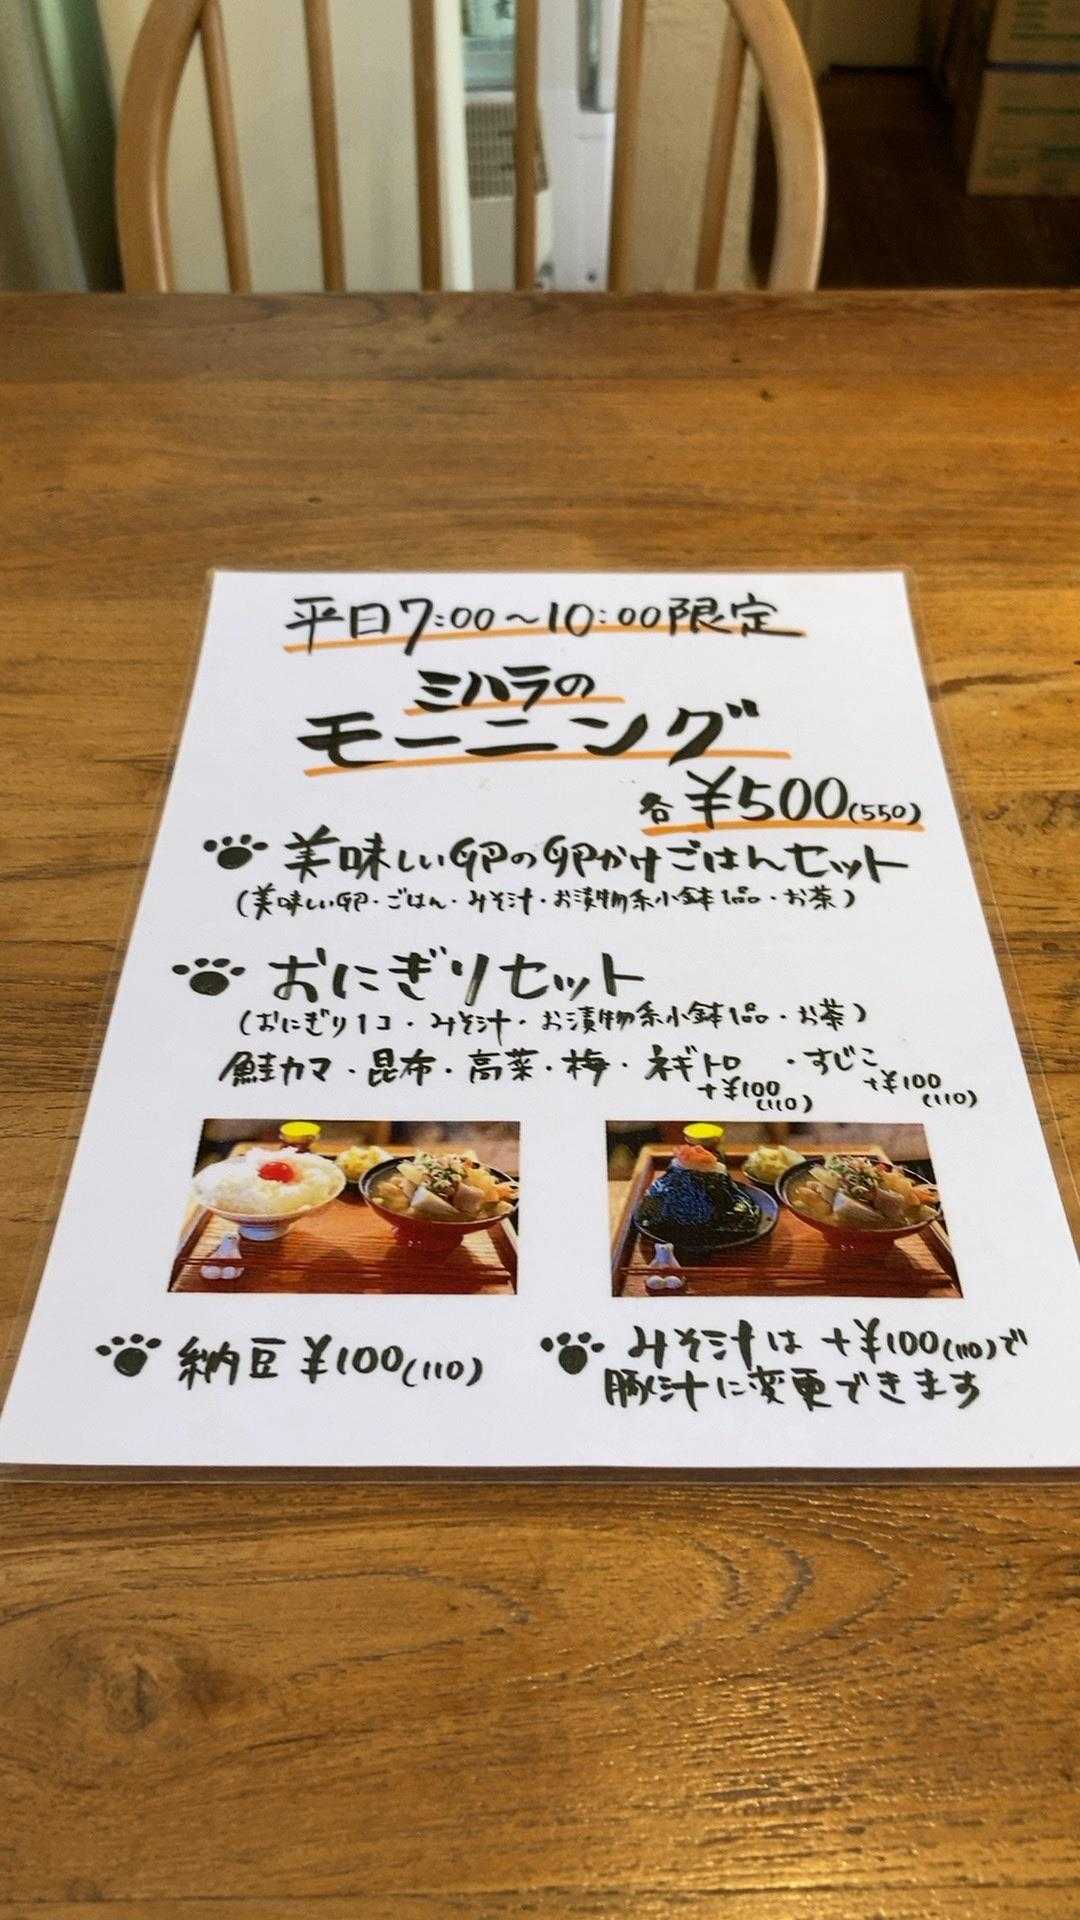 平日7:00～10:00限定
ミハラの
モーニング
各¥500(550)
美味しい卵の卵かけごはんセット
(美味しい卵・ごはん・みそ汁・お漬物系小鉢1品・お茶)
おにぎりセット
(おにぎり1コ・みそ汁・お漬物系小鉢1品・お茶)
鮭カマ・昆布・高菜・梅・ネギトロ・すじこ
+¥100 +¥100
(110) (110)
納豆 ¥100(110)
みそ汁は +¥100(110)で
豚汁に変更できます